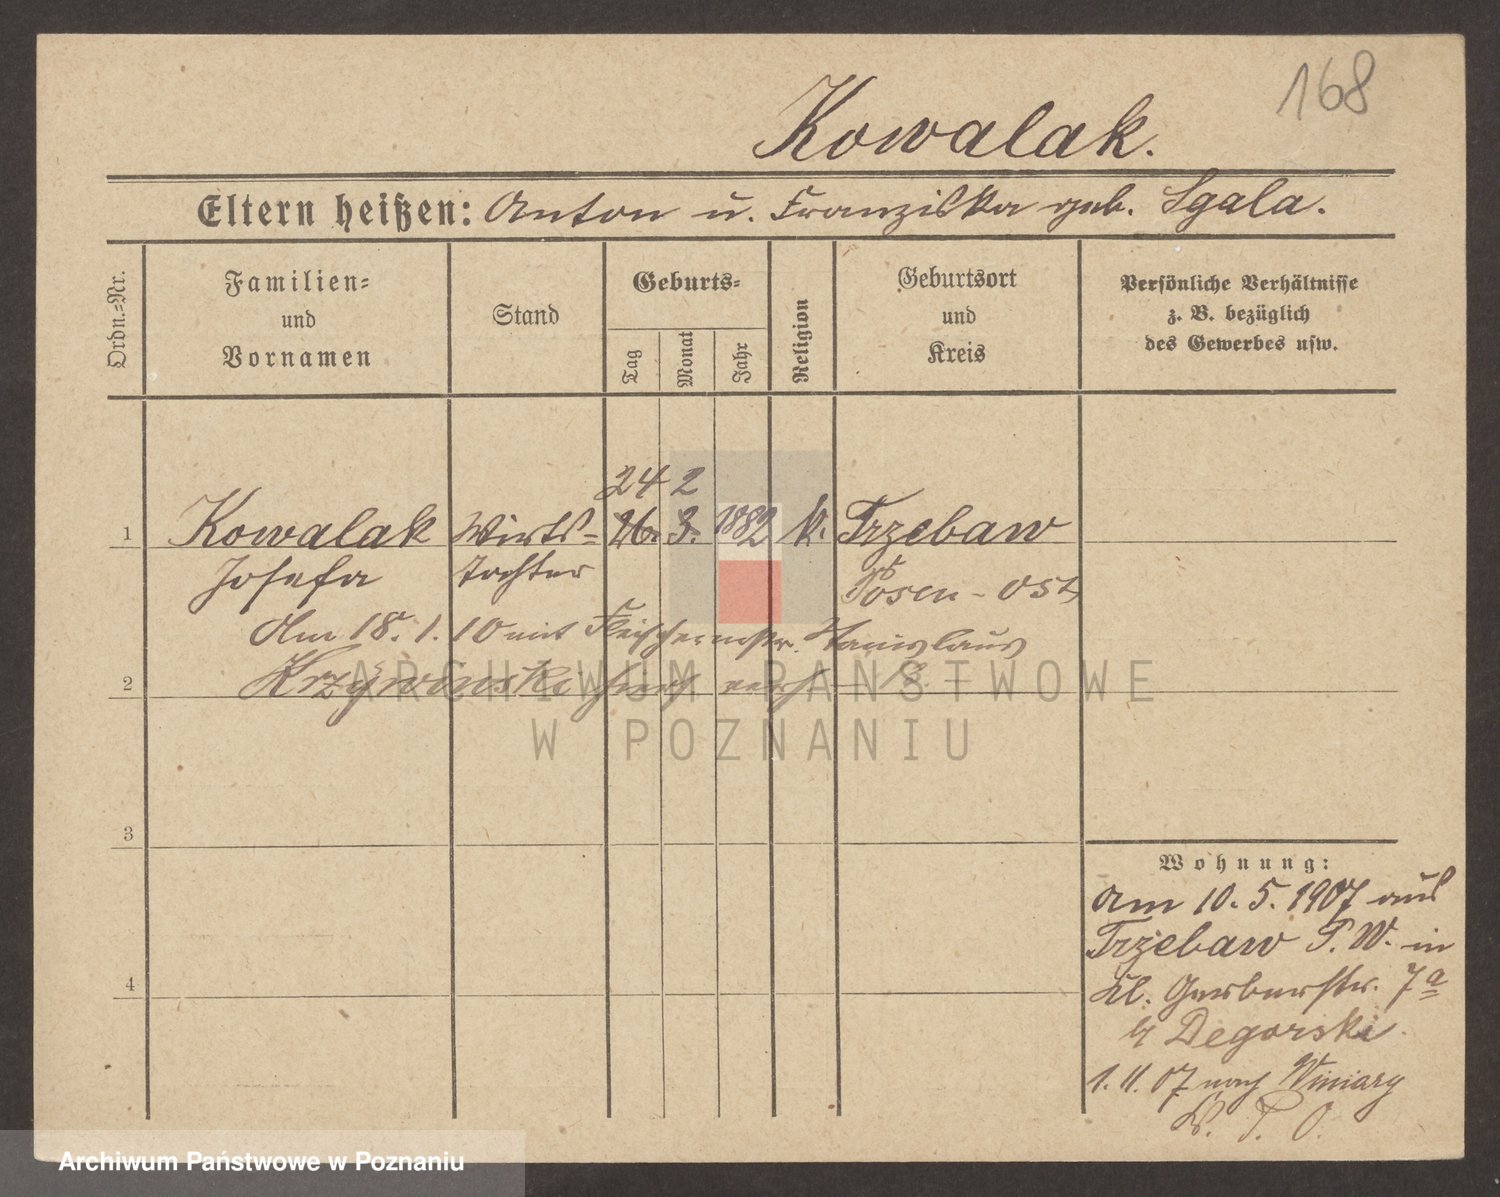 168
Kowalak.
Eltern heißen: Anton u. Franziska geb. Sgala.
Ordn.=Nr.
Familien=
und
Vornamen
Stand
Geburts=
Tag
Monat
Jahr
Religion
Geburtsort
und
Kreis
Persönliche Verhältnisse
z. B. bezüglich
des Gewerbes usw.
24 2
1 Kowalak Wirts= 26. 3. 1882 k. Trzebaw
Josefa tochter Posen - Ost
Am 18. 1. 10 mit Fleischermstr. Stanislaus
2 Krzywinski hier verh.
3
4
Wohnung:
Am 10. 5. 1907 aus
Trzebaw P. W. in
Kl. Gerberstr. 7a
b Degorski.
1. 11. 07 nach Winiary
K. P. O.
ARCHIWUM PAŃSTWOWE
W POZNANIU
Archiwum Państwowe w Poznaniu